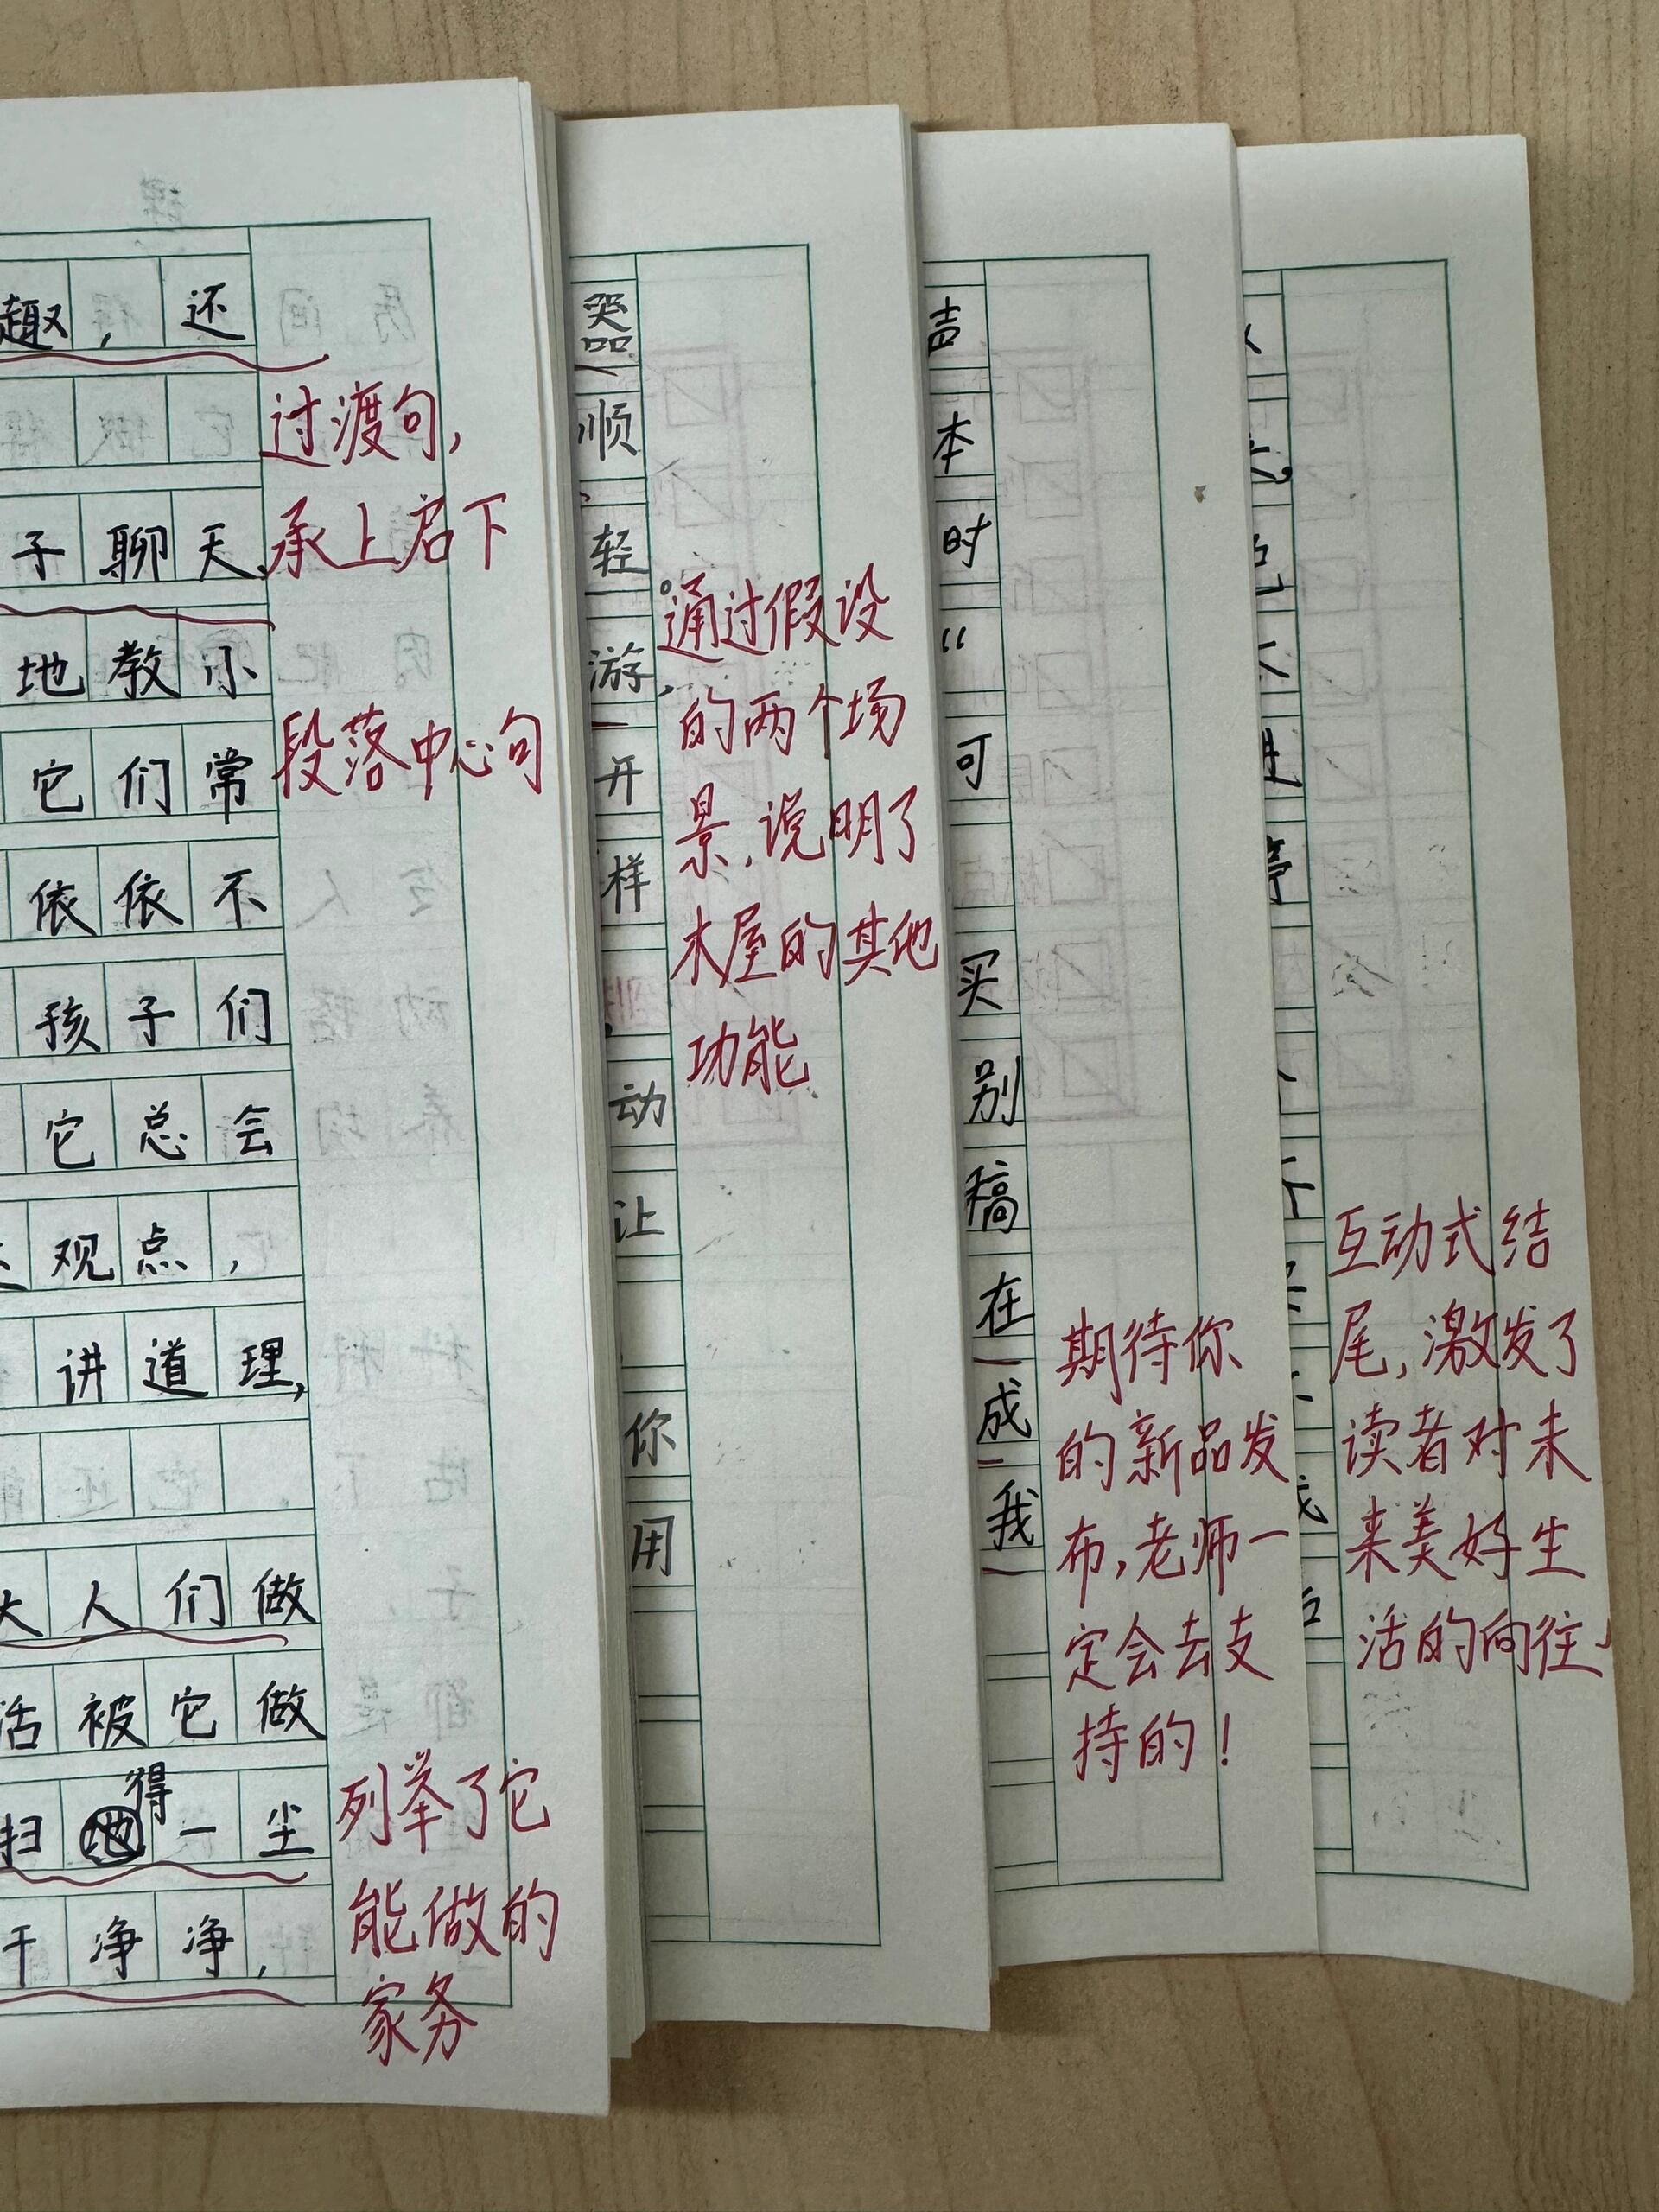 趣，还
过渡句，
承上启下
子聊天
地教小
段落中心句
它们常
依依不
孩子们
它总会
观点，
讲道理，
大人们做
活被它做
得
扫地一尘
干净净，
列举了它
能做的
家务
器
顺
轻
游，
开
样
动
让
你
用
通过假设
的两个场
景，说明了
木屋的其他
功能
声
本
时
“
可
买
别
稿
在
成
我
期待你
的新品发
布，老师一
定会去支
持的！
互动式结
尾，激发了
读者对未
来美好生
活的向往，